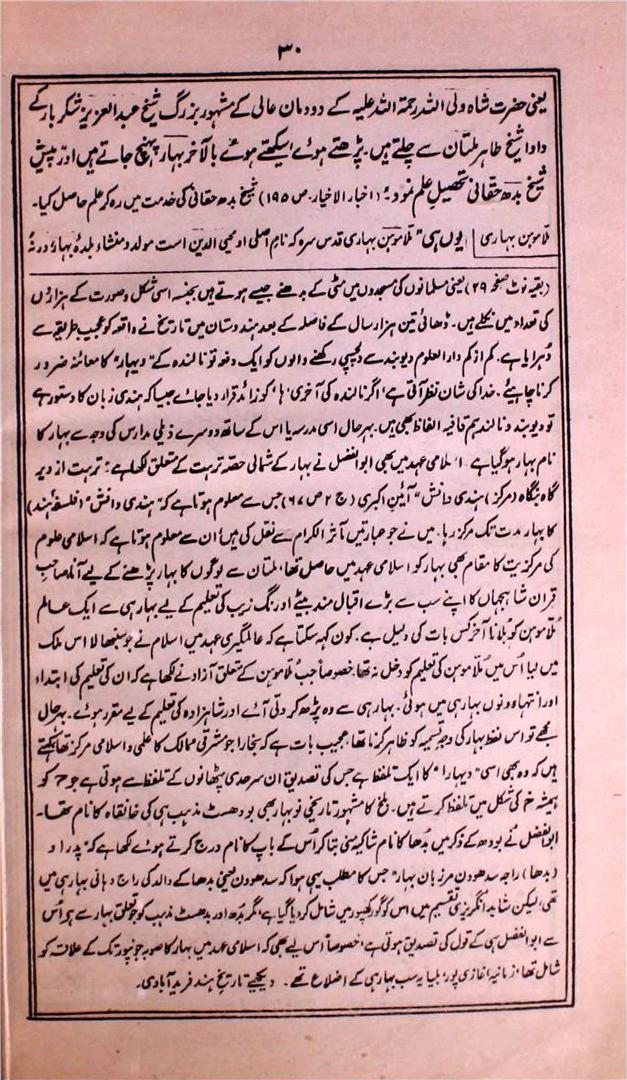 ۳۰
یعنی حضرت شاہ ولی اللہ رحمۃ اللہ علیہ کے دودمان عالی کے مشہور بزرگ شیخ عبدالعزیز شکر بار کے
دادا شیخ طاہر ملتان سے چلتے ہیں۔ پڑھتے ہوئے سیکھتے ہوئے بالآخر بہار پہنچ جاتے ہیں اور پیش
شیخ بدھ حقانی تحصیل علم نمود" (اخبار الاخیار۔ ص ۱۹۵) شیخ بدھ حقانی کی خدمت میں رہ کر علم حاصل کیا۔
ملا موہن بہاری | یوں ہی "ملا موہن بہاری قدس سرہ کہ نام اصلی او محی الدین است مولد و منشاء بلدۂ بہار در نُہ
(بقیہ نوٹ صفحہ ۲۹) یعنی مسلمانوں کی مسجدوں میں مٹی کے بدھنے جیسے ہوتے ہیں بجنسہ اسی شکل و صورت کے ہزاروں
کی تعداد میں نکلے ہیں۔ ڈھائی تین ہزار سال کے فاصلہ کے بعد ہندوستان میں تاریخ نے واقعہ کو عجیب طریقہ سے
دُہرایا ہے۔ کم از کم دارالعلوم دیوبند سے دلچسپی رکھنے والوں کو ایک دفعہ تو نالندہ کے "دیہارا" کا معائنہ ضرور
کرنا چاہیئے۔ خدا کی شان نظر آتی ہے، اگر نالندہ کی آخری "ہا" کو زائد قرار دیا جائے جیسا کہ ہندی زبان کا دستور ہے
تو دیوبند و نالند ہم قافیہ الفاظ بھی ہیں۔ بہرحال اسی مدرسہ یا اس کے ساتھ دوسرے ذیلی مدارس کی وجہ سے بہار کا
نام بہار ہو گیا ہے۔ اسلامی عہد میں بھی ابوالفضل نے بہار کے شمالی حصّہ تربت کے متعلق لکھا ہے: تربت از دیر
گاہ بنگاہ (مرکز) ہندی دانش" آئین اکبری (ج ۲ ص ۶۷) جس سے معلوم ہوتا ہے کہ "ہندی دانش" (فلسفۂ ہند)
کا بہار مدت تک مرکز رہا۔ میں نے جو عبارتیں مآثر الکرام سے نقل کی ہیں، ان سے معلوم ہوتا ہے کہ اسلامی علوم
کی مرکزیت کا مقام بھی بہار کو اسلامی عہد میں حاصل تھا، ملتان سے لوگوں کا بہار پڑھنے کے لیے آنا، صاحب
قران شاہجہاں کا اپنے سب سے بڑے اقبال مند بیٹے اورنگ زیب کی تعلیم کے لیے بہار ہی سے ایک عالم
مُلا موہن کو بلانا آخر کس بات کی دلیل ہے۔ کون کہہ سکتا ہے کہ عالمگیری عہد میں اسلام نے جو سنبھالا اس ملک
میں لیا اُس میں مُلا موہن کی تعلیم کو دخل نہ تھا خصوصاً جب مُلا موہن کے متعلق آزاد نے لکھا ہے کہ ان کی تعلیم کی ابتداء
اور انتہا دونوں بہار ہی میں ہوئی۔ بہار ہی سے وہ پڑھ کر دتی آئے اور شاہزادہ کی تعلیم کے لیے مقرر ہوئے۔ بہرحال
مجھے تو اس لفظ بہار کی وجہ تسمیہ کو ظاہر کرنا تھا، عجیب بات ہے کہ بخارا جو مشرقی ممالک کا علمی و اسلامی مرکز تھا کہتے
ہیں کہ وہ بھی اسی "دیہارا" کا ایک تلفظ ہے جس کی تصدیق ان سرحدی پٹھانوں کے تلفظ سے ہوتی ہے جو ح کو
ہمیشہ خ کی شکل میں تلفظ کرتے ہیں۔ بلخ کا مشہور تاریخی نو بہار بھی بودھسٹ مذہب ہی کی خانقاہ کا نام تھا۔
ابوالفضل نے بودھ کے ذکر میں بدھا کا نام شاکیہ منی بتا کر اُس کے باپ کا نام درج کرتے ہوئے لکھا ہے "پدر او
(بدھا) راجہ سدھودن مرزبان بہار" جس کا مطلب یہی ہوا کہ سدھودن یعنی بدھا کے والد کی راج دہانی بہار ہی میں
تھی، لیکن شاید انگریزی تقسیم میں اس کو گورکھپور میں شامل کر دیا گیا ہے، مگر بدھ اور بدھسٹ مذہب کو جو تعلق بہار سے ہے اُس
سے ابوالفضل ہی کے قول کی تصدیق ہوتی ہے، خصوصاً اس لیے بھی کہ اسلامی عہد میں بہار کا صوبہ جونپور تک کے علاقہ کو
شامل تھا، زمانیہ، غازی پور، بلیا یہ سب بہار ہی کے اضلاع تھے۔ دیکھیے تاریخ ہند فرید آبادی۔